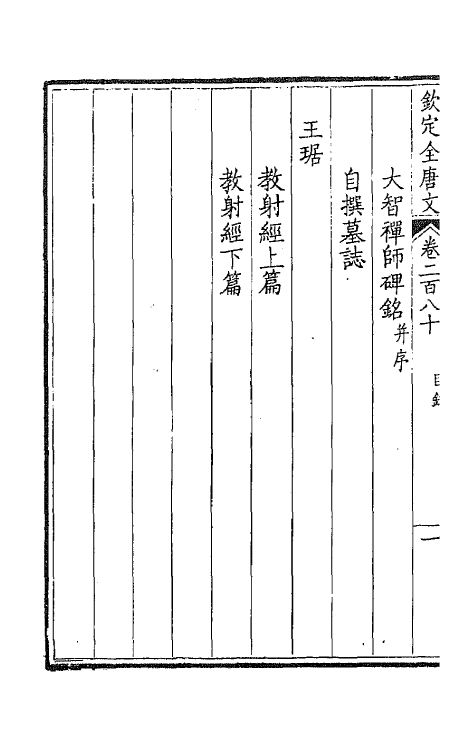 欽定全唐文 卷二百八十 目錄 一
大智禪師碑銘 并序
自撰墓誌
王琚
教射經上篇
教射經下篇